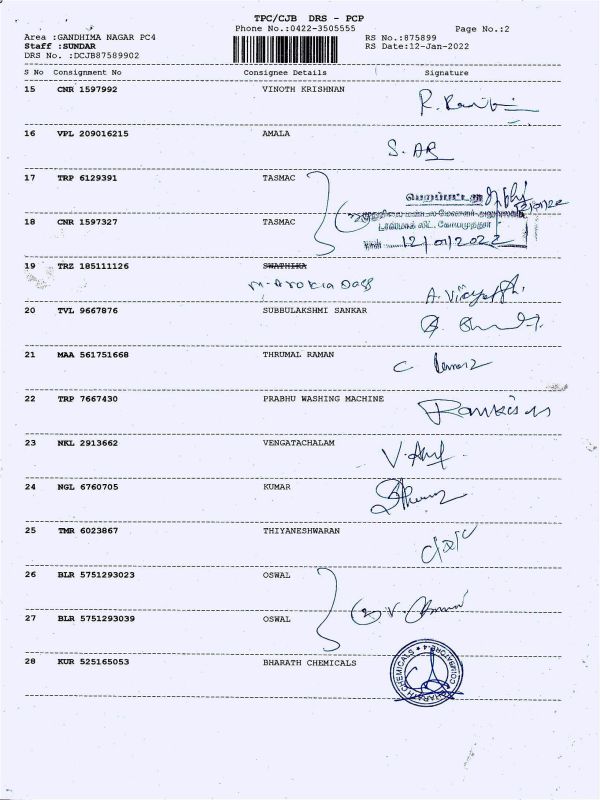 TPC/CJB DRS - PCP
Phone No.:0422-3505555 Page No.:2
Area :GANDHIMA NAGAR PC4 RS No.:875899
Staff :SUNDAR RS Date:12-Jan-2022
DRS No. :DCJB87589902
S No Consignment No Consignee Details Signature
15 CNR 1597992 VINOTH KRISHNAN
16 VPL 209016215 AMALA
S.
17 TRP 6129391 TASMAC
பெறப்பட்டது
12/01/22
18 CNR 1597327 TASMAC
டாஸ்மாக் லிட்., கோயமுத்தூர்
நாள் 12/01/2022
19 TRZ 185111126 SWATHIKA
M. AROKIA DASS
20 TVL 9667876 SUBBULAKSHMI SANKAR
21 MAA 561751668 THRUMAL RAMAN
22 TRP 7667430 PRABHU WASHING MACHINE
23 NKL 2913662 VENGATACHALAM
24 NGL 6760705 KUMAR
25 TMR 6023867 THIYANESHWARAN
26 BLR 5751293023 OSWAL
27 BLR 5751293039 OSWAL
28 KUR 525165053 BHARATH CHEMICALS
BHARATH CHEMICALS * COIMBATORE-4 *